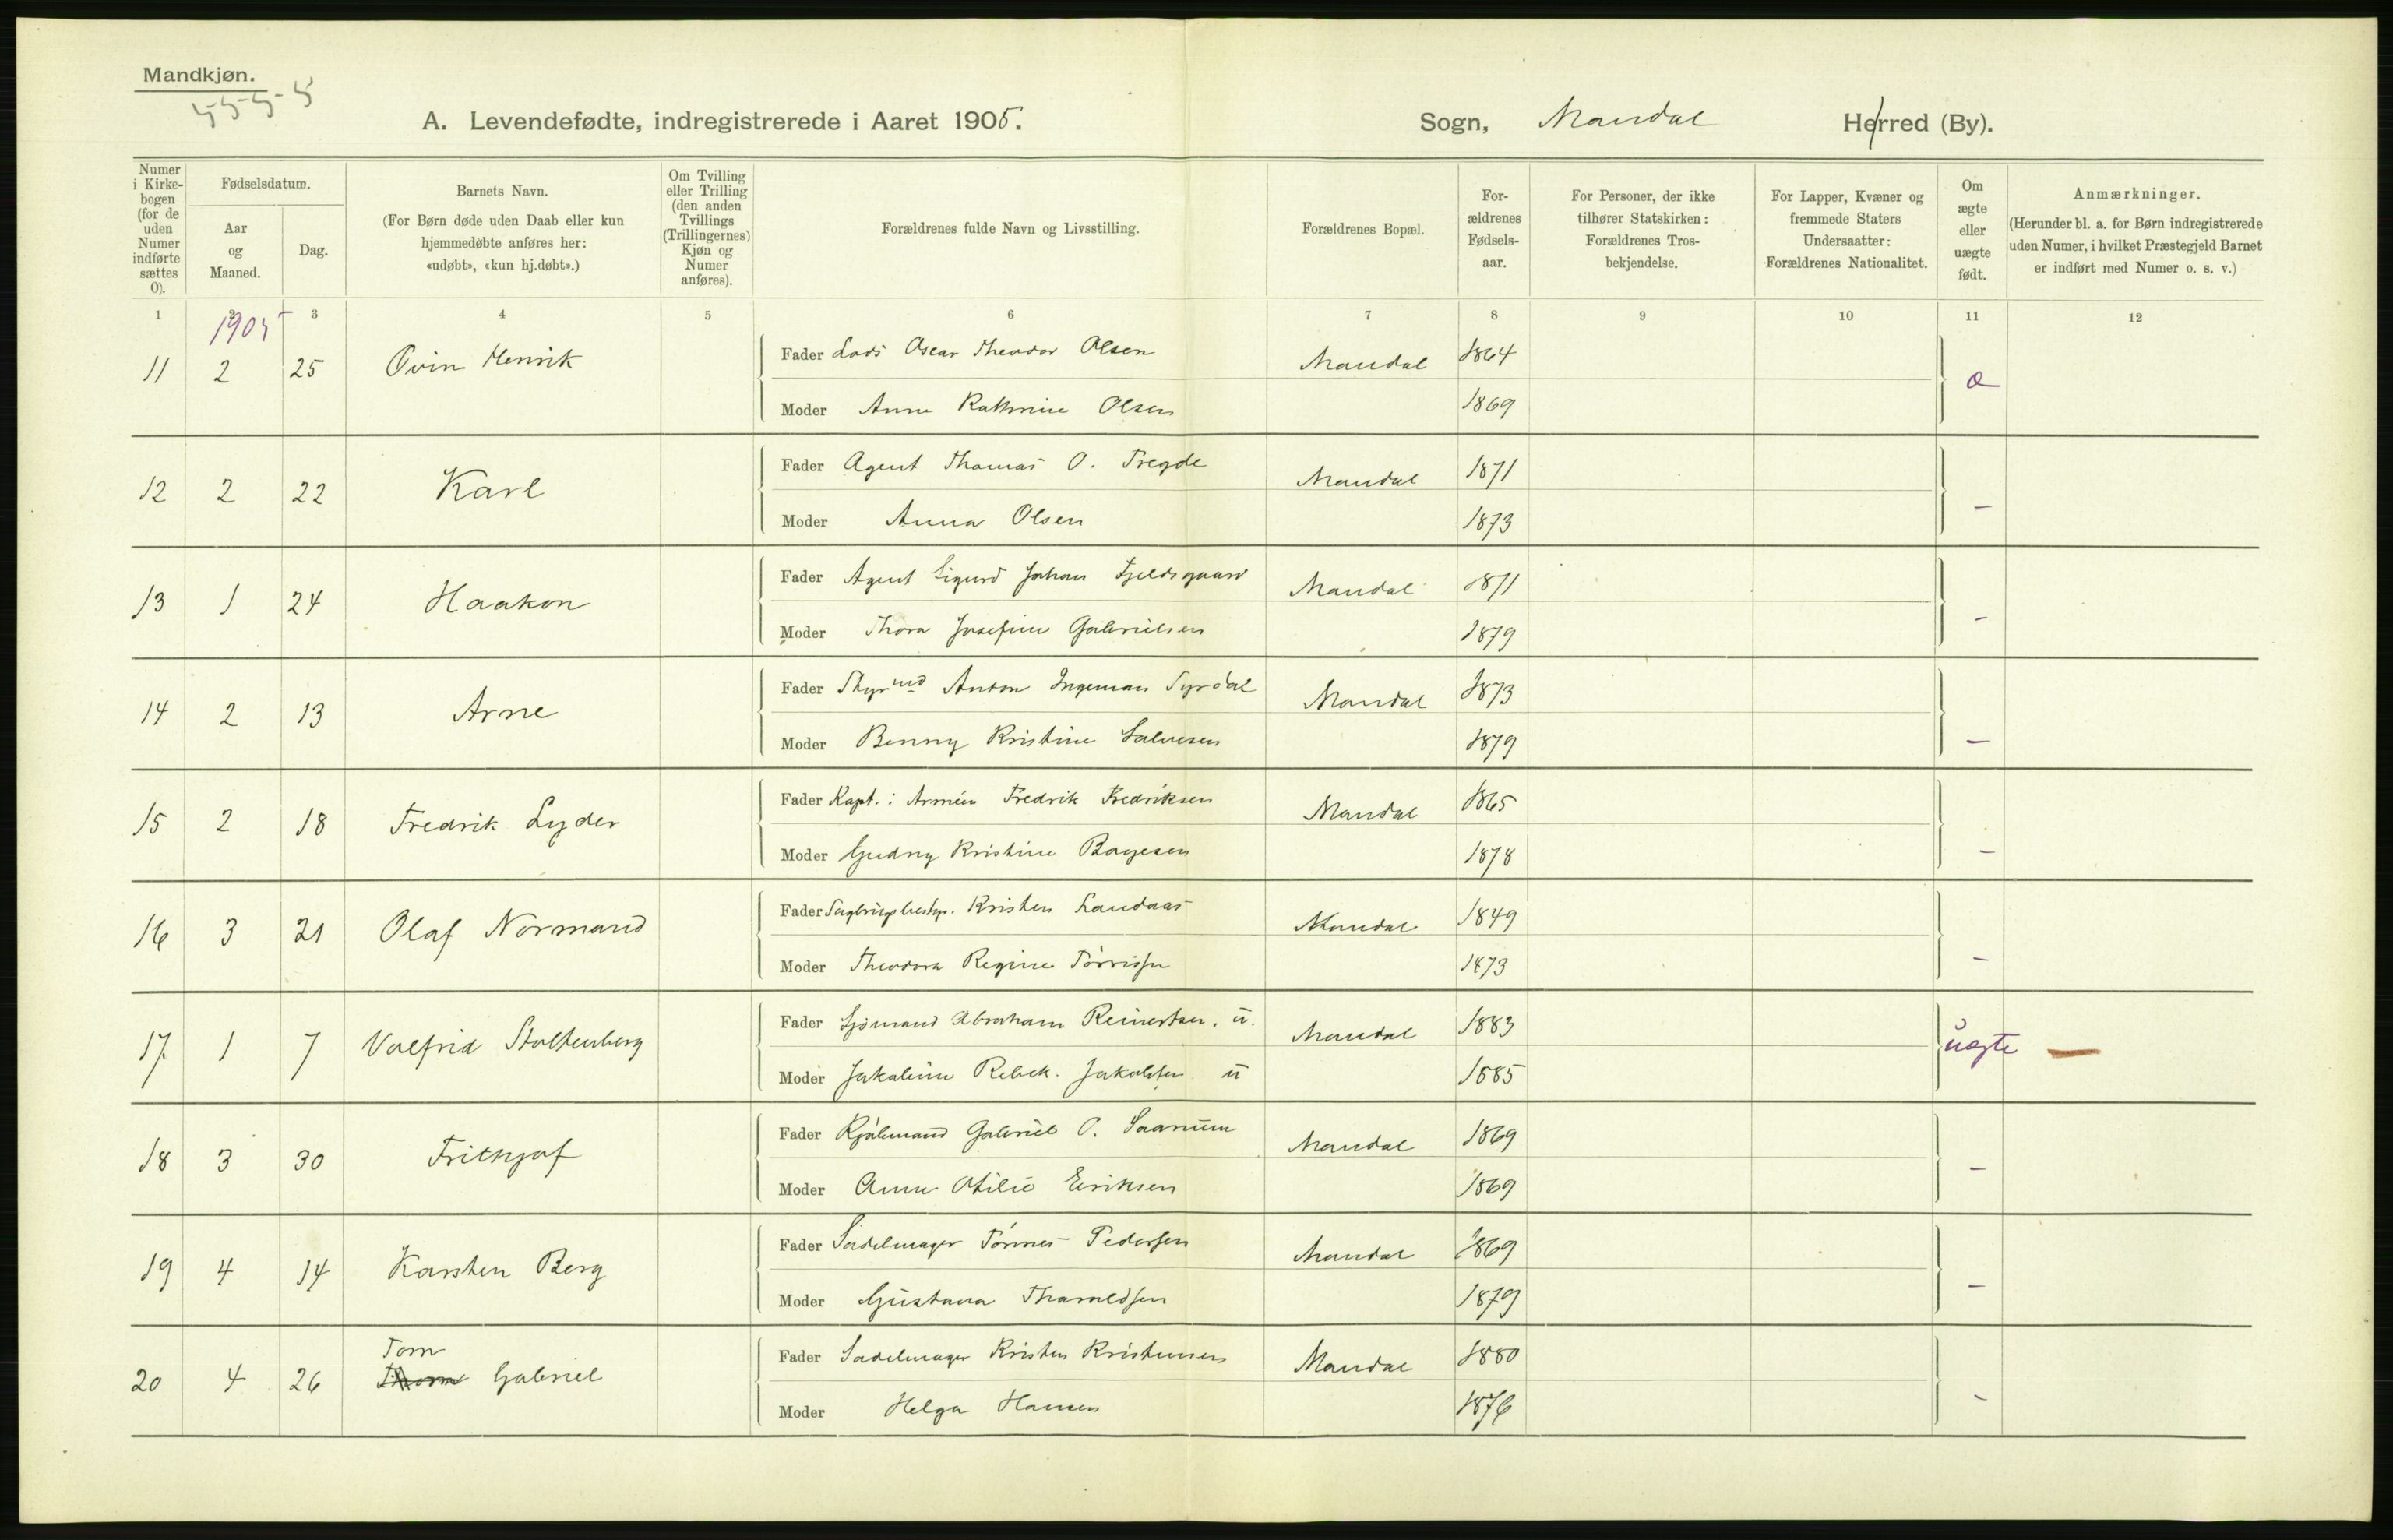 Mandkjøn.
5-5-5-5
A. Levendefødte, indregistrerede i Aaret 1905. Sogn, Mandal Herred (By).
Numer i Kirkebogen (for de uden Numer indførte sættes 0).
Fødselsdatum.
Aar og Maaned.
Dag.
Barnets Navn.
(For Børn døde uden Daab eller kun hjemmedøbte anføres her: «udøbt», «kun hj.døbt».)
Om Tvilling eller Trilling (den anden Tvillings (Trillingernes) Kjøn og Numer anføres).
Forældrenes fulde Navn og Livsstilling.
Forældrenes Bopæl.
Forældrenes Fødselsaar.
For Personer, der ikke tilhører Statskirken: Forældrenes Trosbekjendelse.
For Lapper, Kvæner og fremmede Staters Undersaatter: Forældrenes Nationalitet.
Om ægte eller uægte født.
Anmærkninger.
(Herunder bl. a. for Børn indregistrerede uden Numer, i hvilket Præstegjeld Barnet er indført med Numer o. s. v.)
1 2 3 4 5 6 7 8 9 10 11 12
1905
11 2 25 Øvin Henrik Fader Lods Oscar Theodor Olsen Mandal 1864 æ
Moder Anne Kathrine Olsen 1869
12 2 22 Karl Fader Agent Thomas O. Tregde Mandal 1871 —
Moder Anna Olsen 1873
13 1 24 Haakon Fader Agent Sigurd Johan Fjeldsgaard Mandal 1871 —
Moder Thora Josefine Gabrielsen 1879
14 2 13 Arne Fader Styrmd Anton Ingeman Syrdal Mandal 1873 —
Moder Benny Kristine Salvesen 1879
15 2 18 Fredrik Lyder Fader Kapt. i Arméen Fredrik Fredriksen Mandal 1865 —
Moder Gudny Kristine Bøyesen 1878
16 3 21 Olaf Normand Fader Kristen Landaas Mandal 1849 —
Moder Theodora Regine Tørrissen 1873
17 1 7 Valfrid Stoltenberg Fader Sjømand Abraham Reinertsen, u. Mandal 1883 uægte —
Moder Jakobine Rebek. Jakobsen u 1885
18 3 30 Frithjof Fader Kjølmand Gabriel O. Saanum Mandal 1869 —
Moder Anne Otilie Eriksen 1869
19 4 14 Karsten Berg Fader Sadelmager Tønnes Pedersen Mandal 1869 —
Moder Gustava Tharaldsen 1879
Tom
20 4 26 Thom Gabriel Fader Sadelmager Kristen Kristensen Mandal 1880 —
Moder Helga Hansen 1876